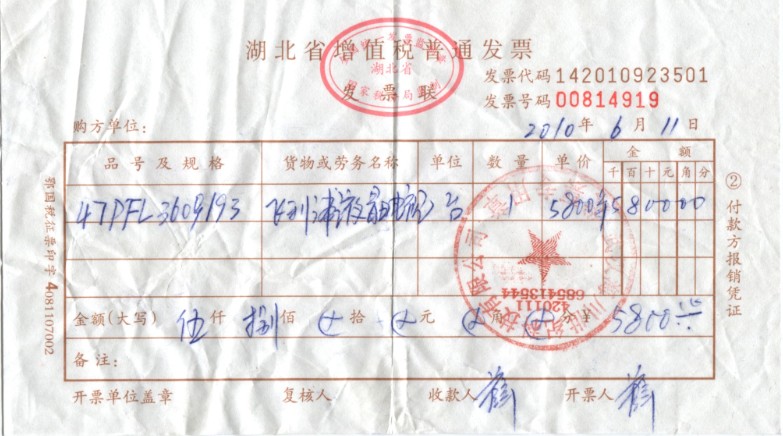 湖北省增值税普通发票
湖北省
发票联
发票代码 142010923501
发票号码 00814919
购方单位:
2010年 6月 11日
品号及规格 货物或劳务名称 单位 数量 单价 金额
千 百 十 元 角 分
47PFL3609/93 飞利浦液晶电视 台 1 5800 580000
金额(大写) 伍仟 捌佰 拾 元 角 分 ¥ 5800
备注:
开票单位盖章 复核人 收款人 开票人
鄂国税征票印字4081107002
② 付款方报销凭证
有限公司
42011
665413544